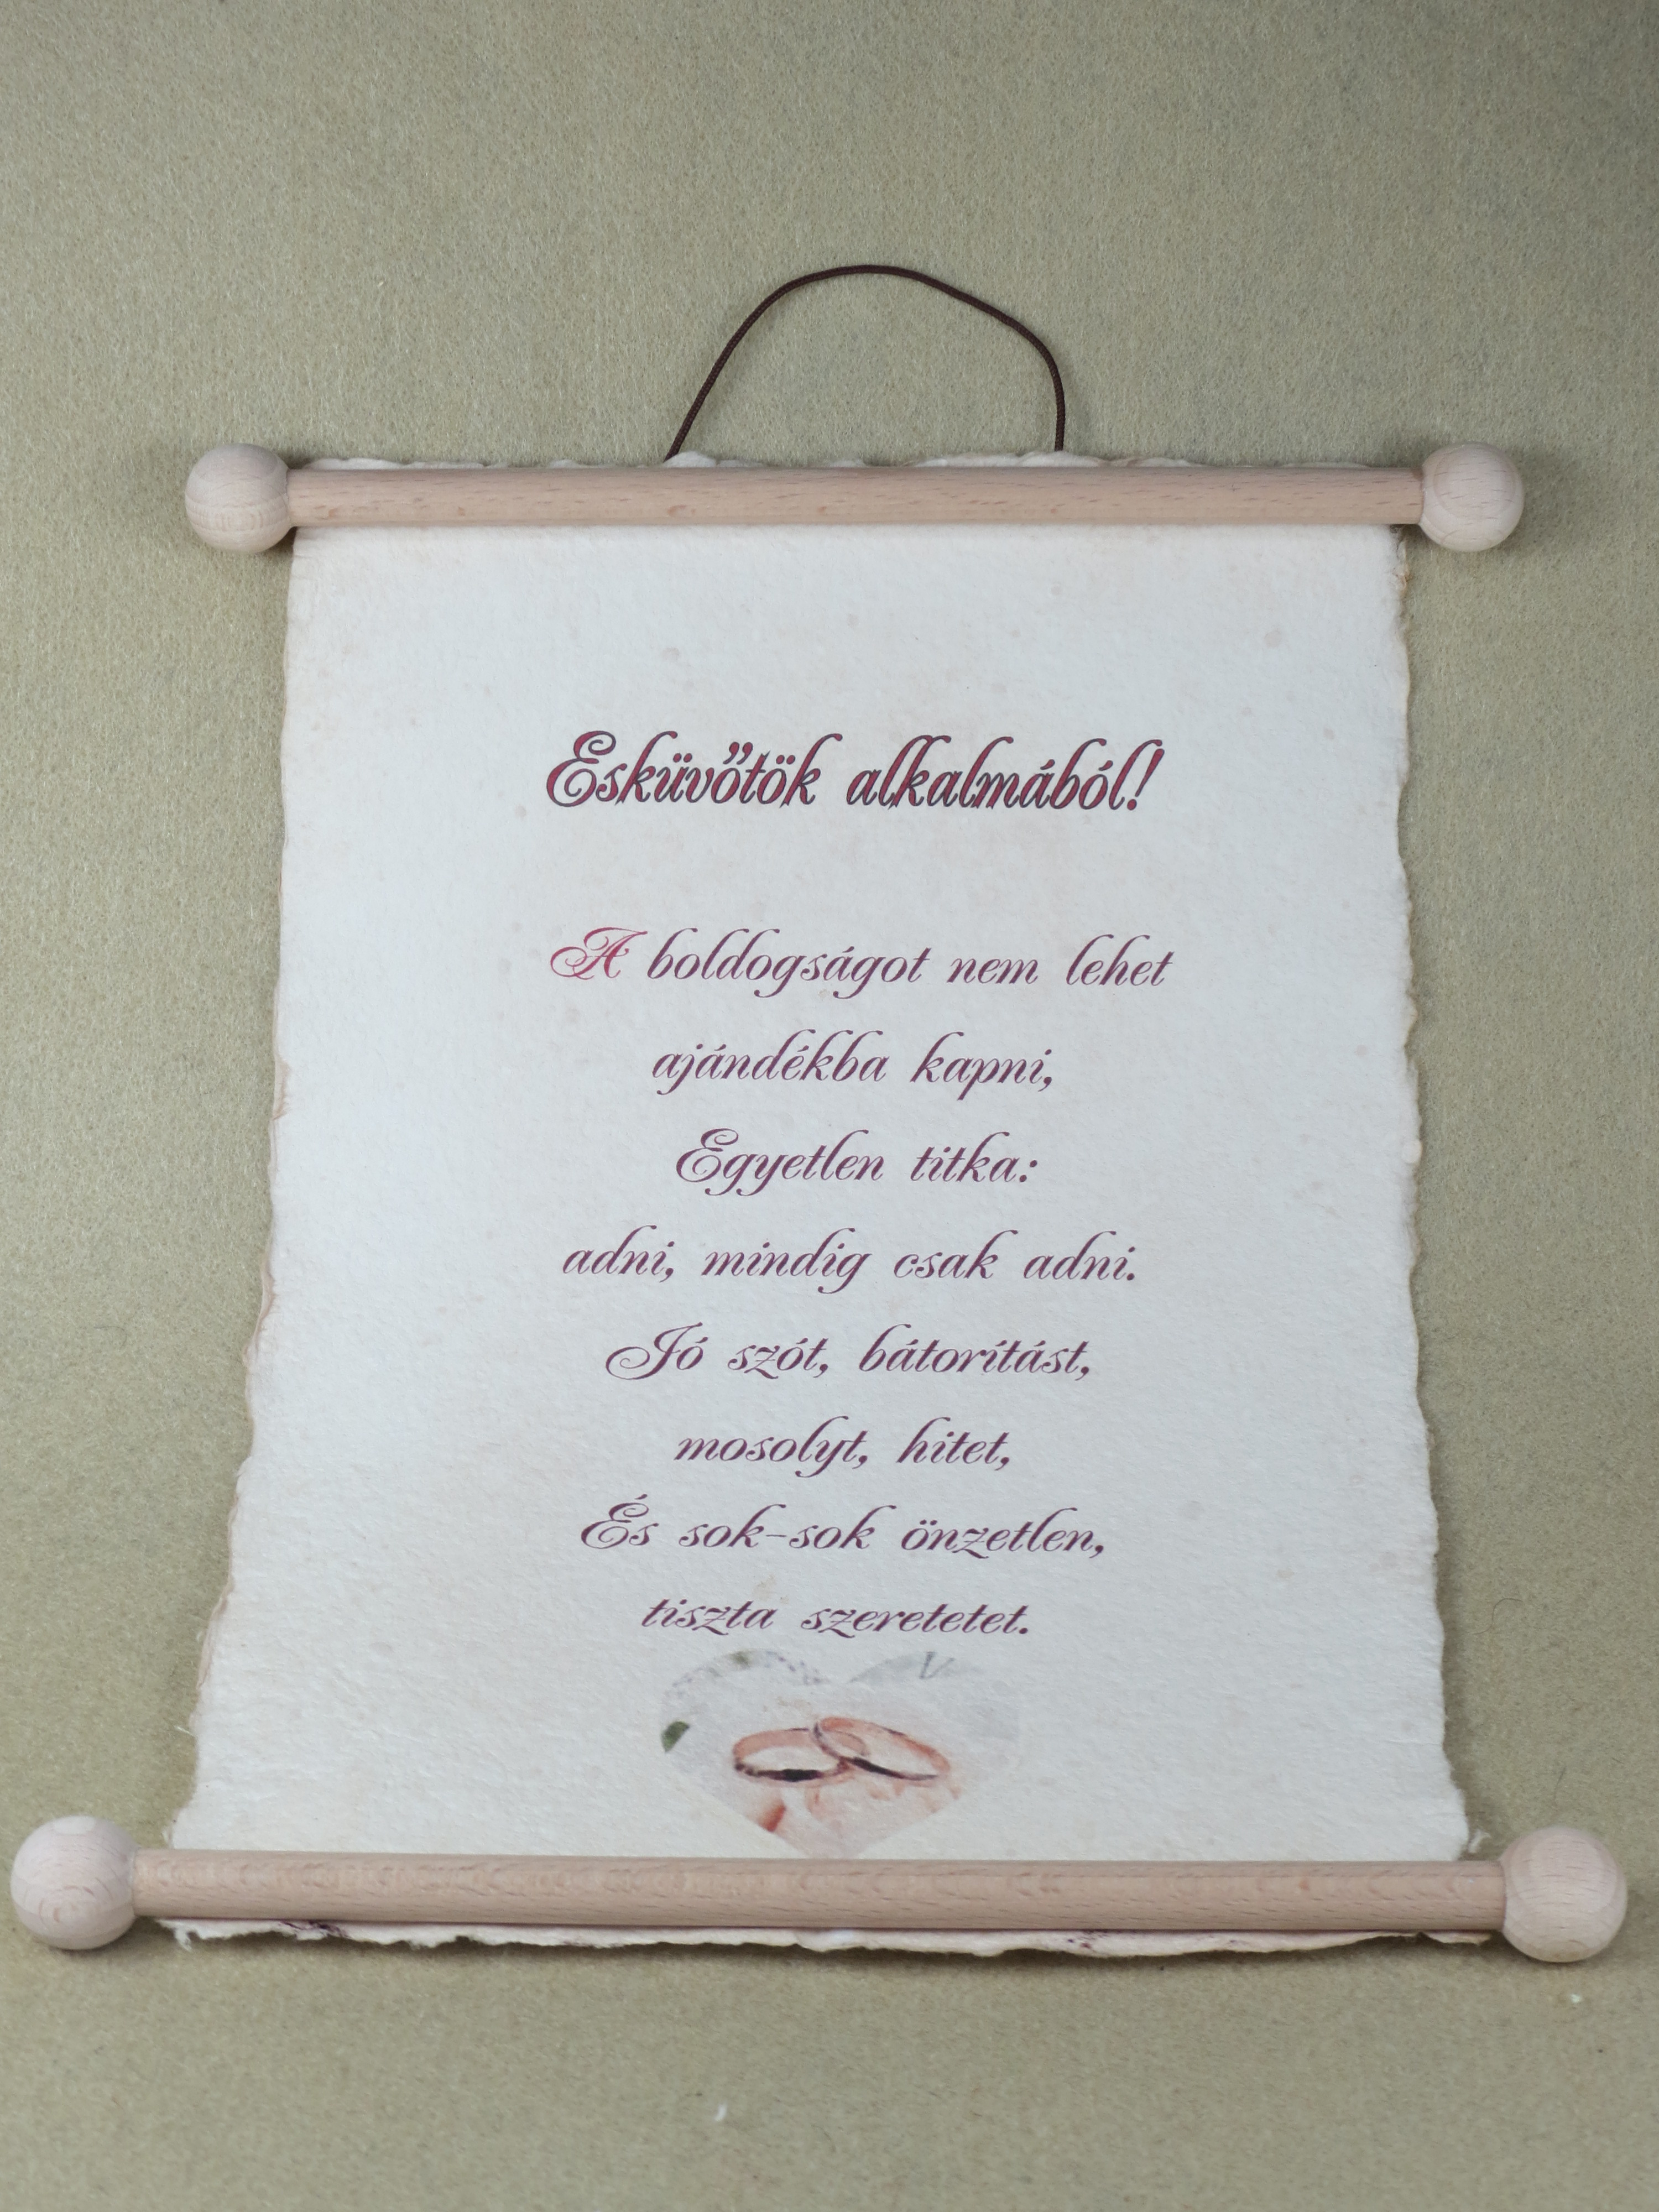 Esküvőtök alkalmából!
A boldogságot nem lehet
ajándékba kapni,
Egyetlen titka:
adni, mindig csak adni.
Jó szót, bátorítást,
mosolyt, hitet,
És sok-sok önzetlen,
tiszta szeretetet.